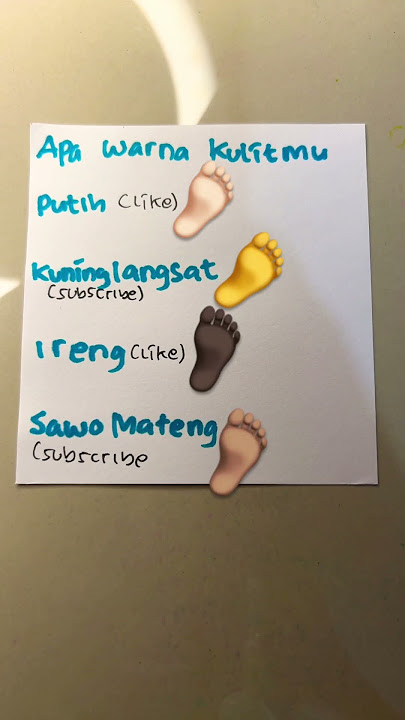 Apa warna Kulitmu
Putih (Like)
Kuninglangsat
(subscribe)
Ireng (Like)
Sawo Mateng
(subscribe